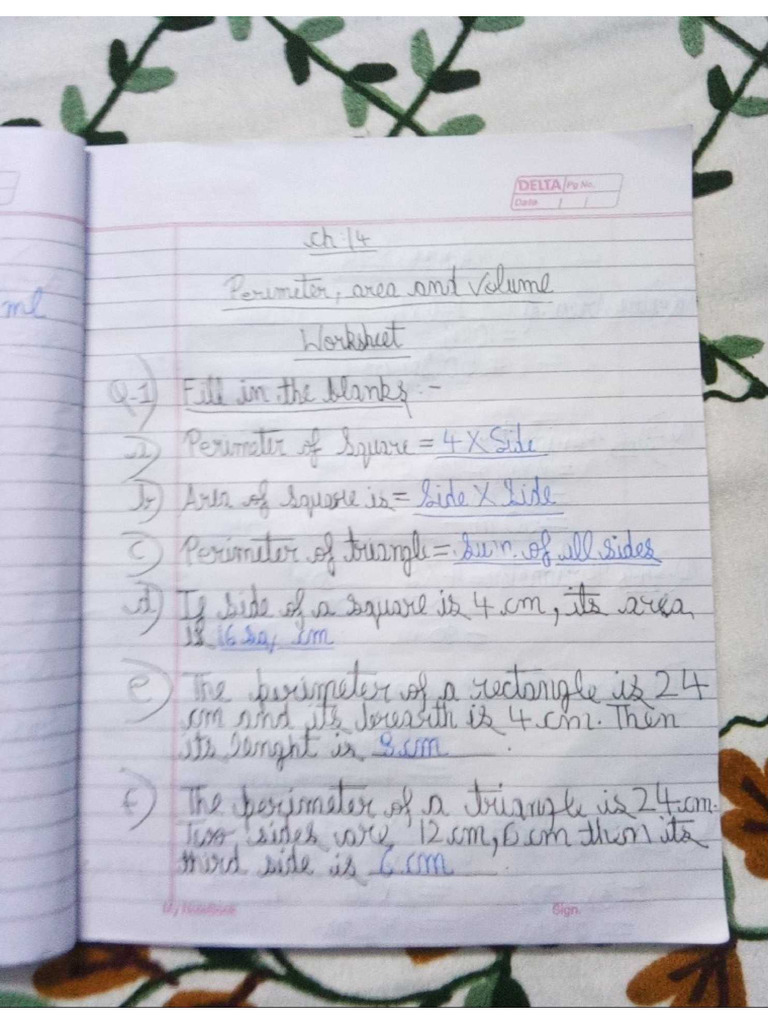 DELTA Pg No.
Date / /
ml
Ch:14
Perimeter, area and Volume
Worksheet
Q-1) Fill in the blanks :-
a) Perimeter of Square = 4 X Side
b) Area of square is = Side X Side
c) Perimeter of triangle = Sum of all sides
d) If side of a square is 4 cm, its area
is 16 sq, cm
e) The perimeter of a rectangle is 24
cm and its breadth is 4 cm. Then
its lenght is 8 cm.
f) The perimeter of a triangle is 24 cm.
Two sides are 12 cm, 6 cm then its
third side is 6 cm.
My NoteBook Sign.